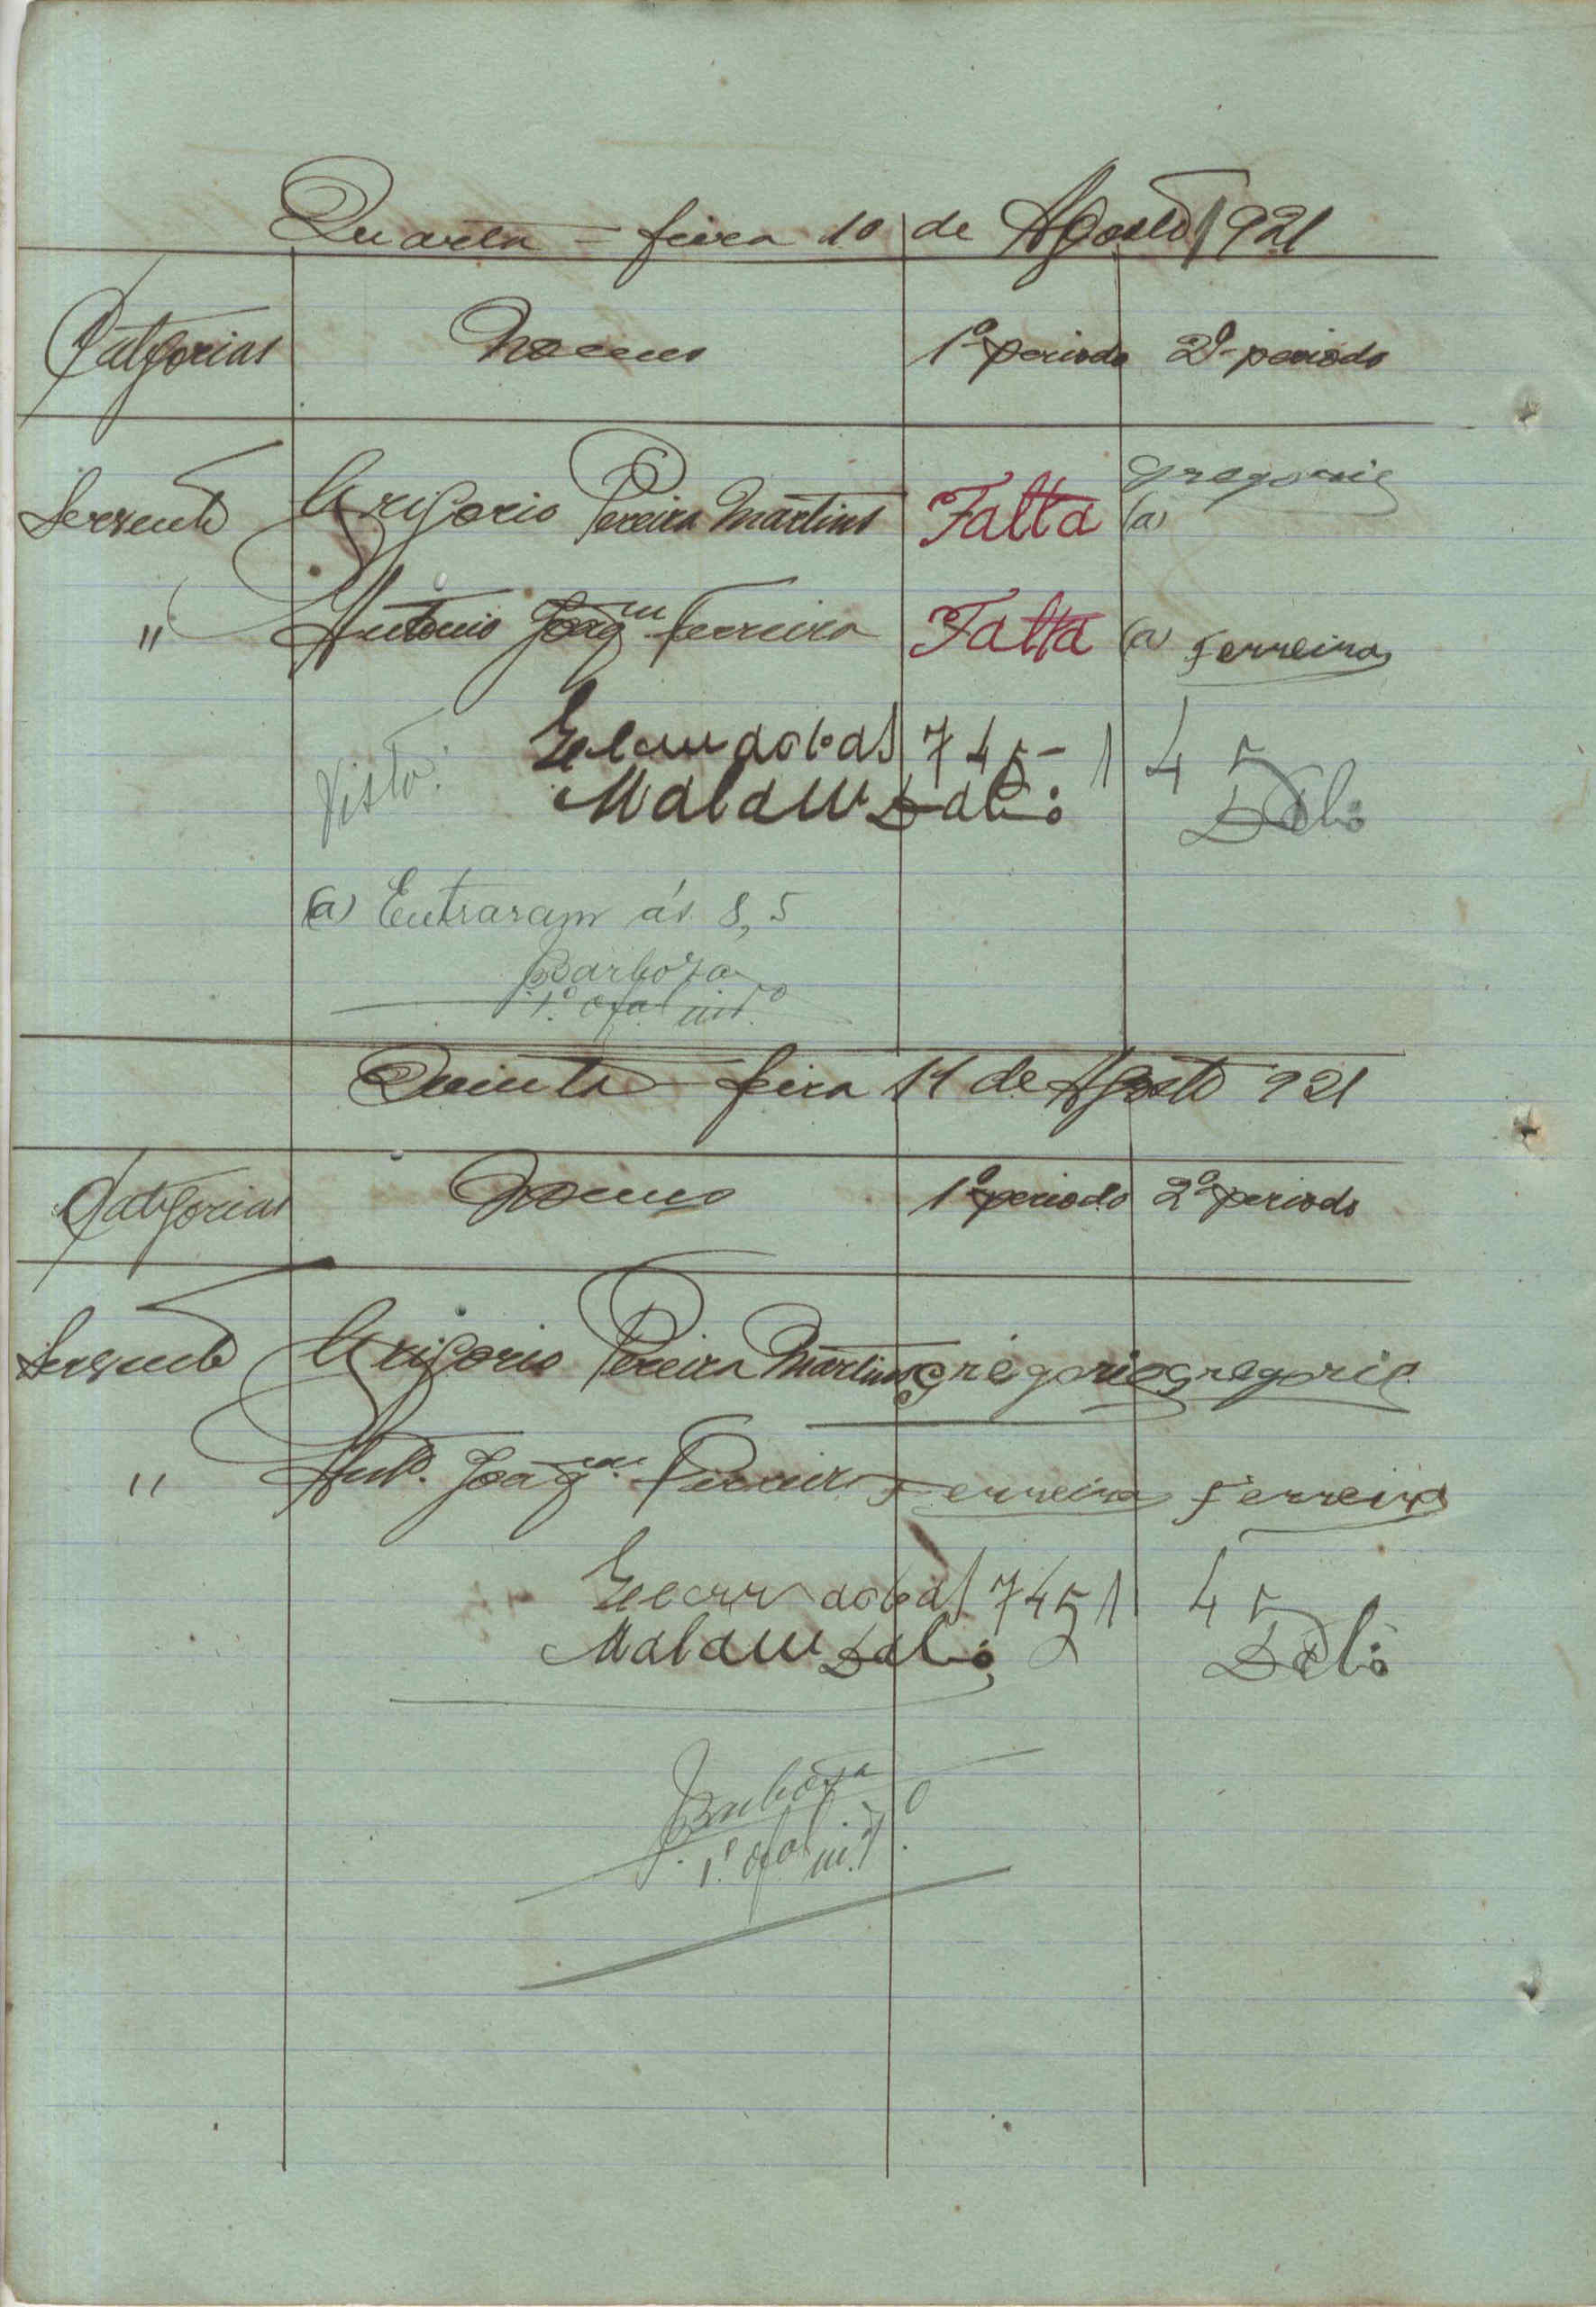 Quarta-feira 10 de Agosto 1921
Categorias Nomes 1º periodo 2º periodo
Servente Grigorio Pereira Martins Falta (a) gregorio
" Antonio Joaqm Ferreira Falta (a) Ferreira
Visto: 7 45 1 4 5
Malam Dabó Dabó
(a) Entraram ás 8,5
Barboza
1º ofal intº
Quinta-feira 11 de Agosto 921
Categorias Nomes 1º periodo 2º periodo
Servente Grigorio Pereira Martins gregorio gregorio
" Antº. Joaqm. Ferreira Ferreira Ferreira
7 45 1 4 5
Malam Dabó Dabó
Barboza
1º ofal intº